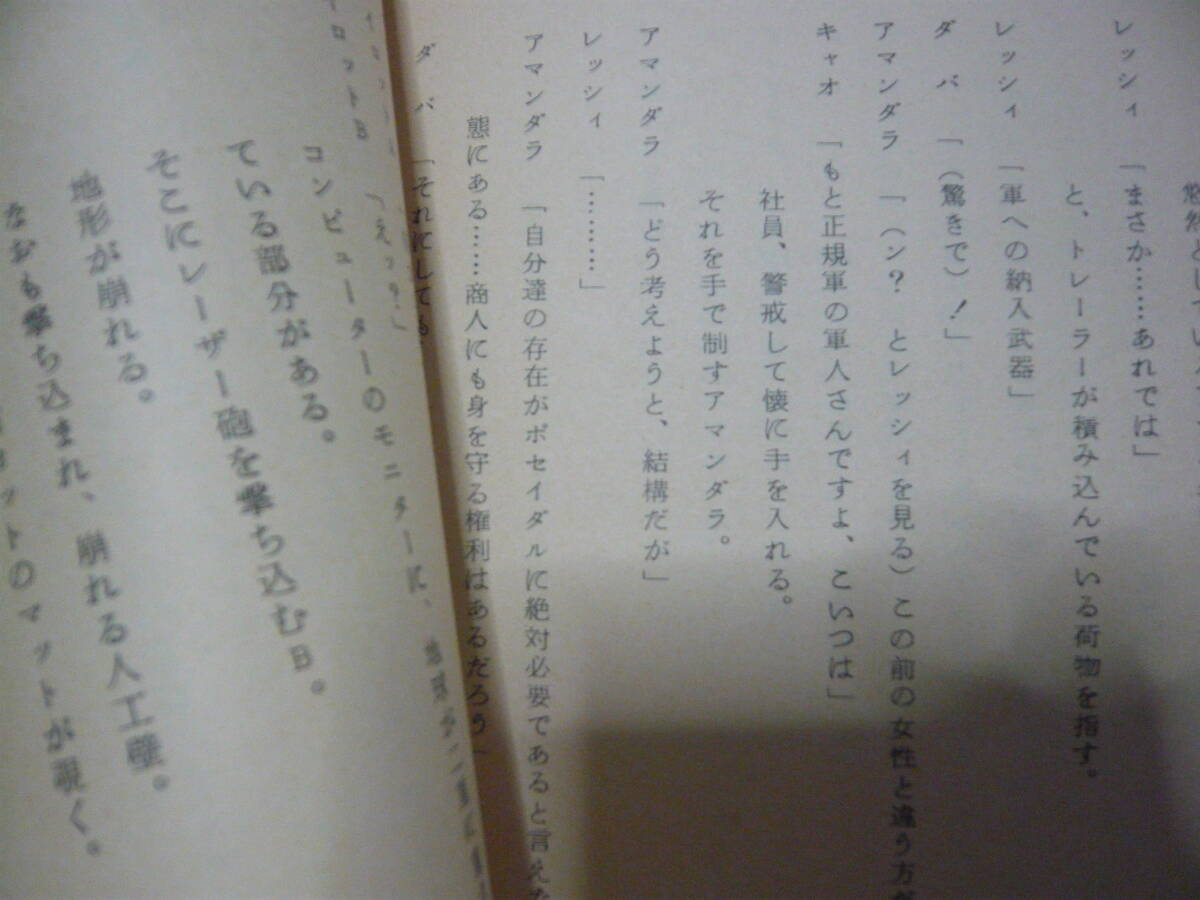 レッシィ 「まさか……あれでは」
と、トレーラーが積み込んでいる荷物を指す。
レッシィ 「軍への納入武器」
ダバ 「（驚きで）！」
アマンダラ 「（ン？ とレッシィを見る）この前の女性と違う方が
キャオ 「もと正規軍の軍人さんですよ、こいつは」
社員、警戒して懐に手を入れる。
それを手で制すアマンダラ。
アマンダラ 「どう考えようと、結構だが」
レッシィ 「………」
アマンダラ 「自分達の存在がポセイダルに絶対必要であると言えた
態にある……商人にも身を守る権利はあるだろう
ダバ 「それにしても
ロットB 「えっ？」
コンピューターのモニターに、
ている部分がある。
そこにレーザー砲を撃ち込むB。
地形が崩れる。
なおも撃ち込まれ、崩れる人工壁。
ットのマットが覗く。